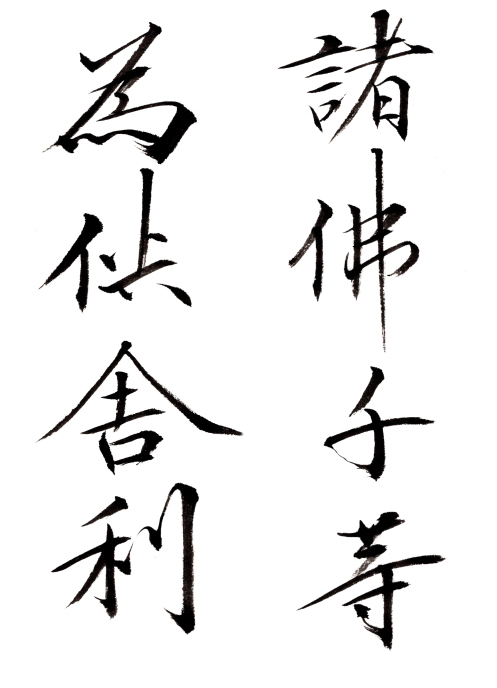 諸佛子等
為供舍利